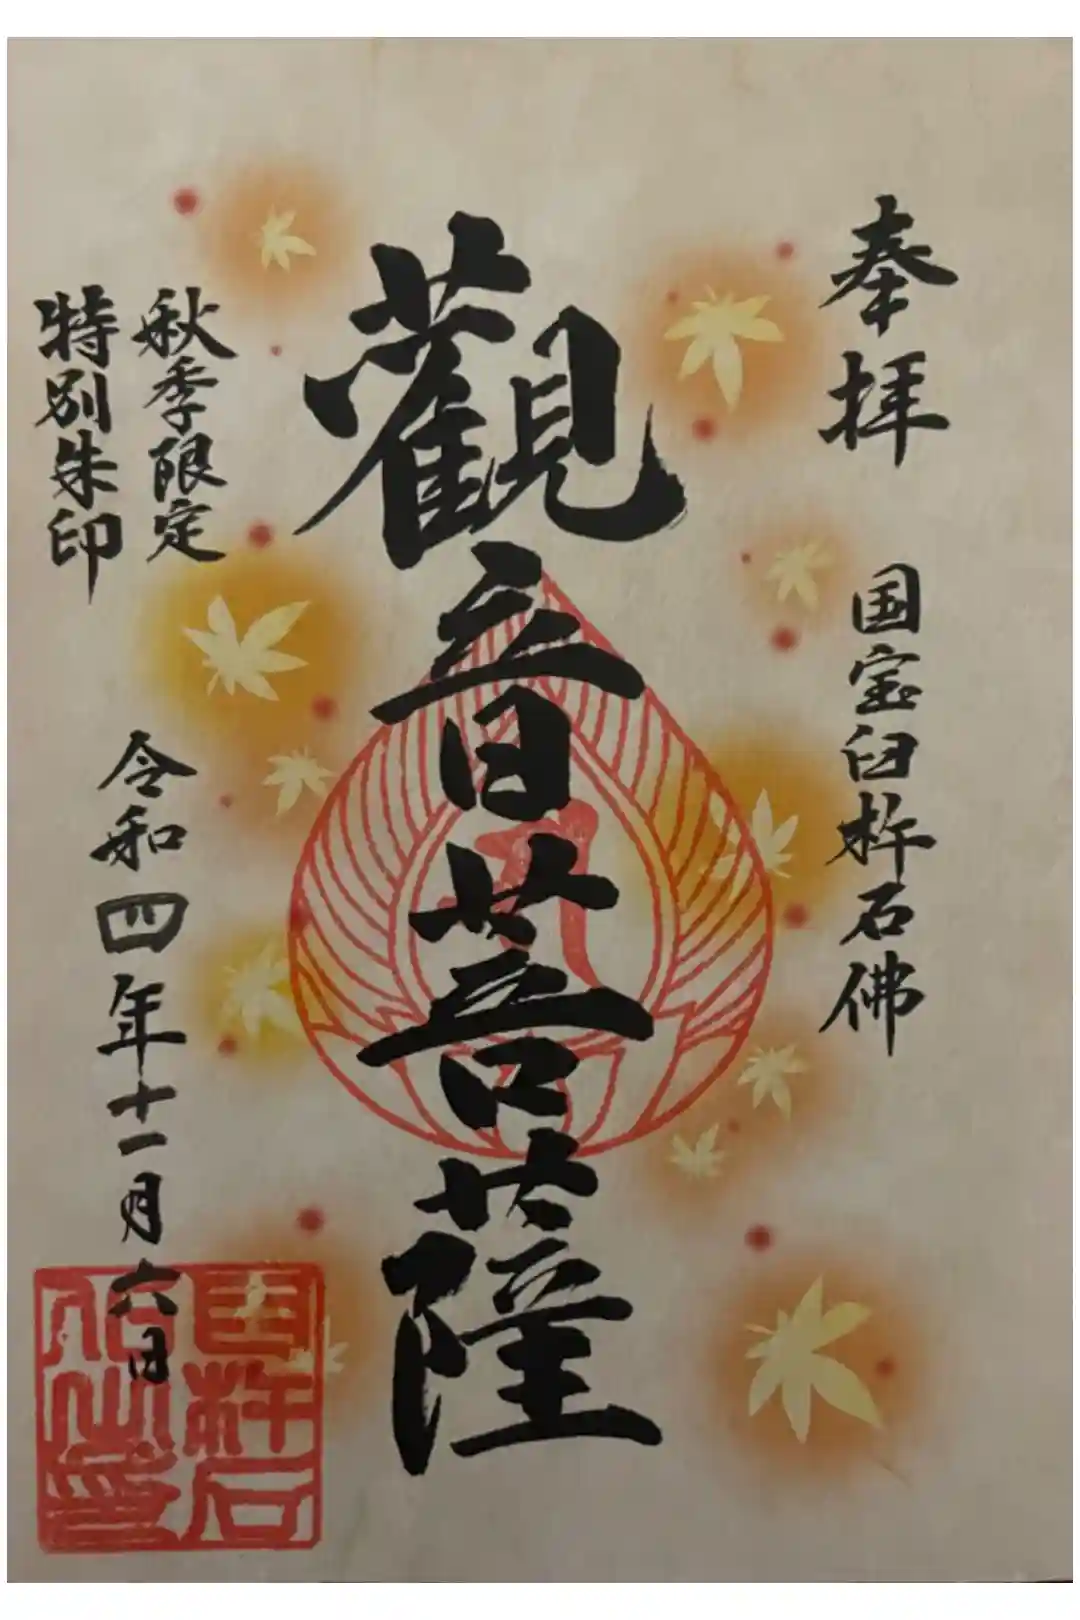 奉拝
国宝臼杵石佛
觀音菩薩
秋季限定
特別朱印
令和四年十一月六日